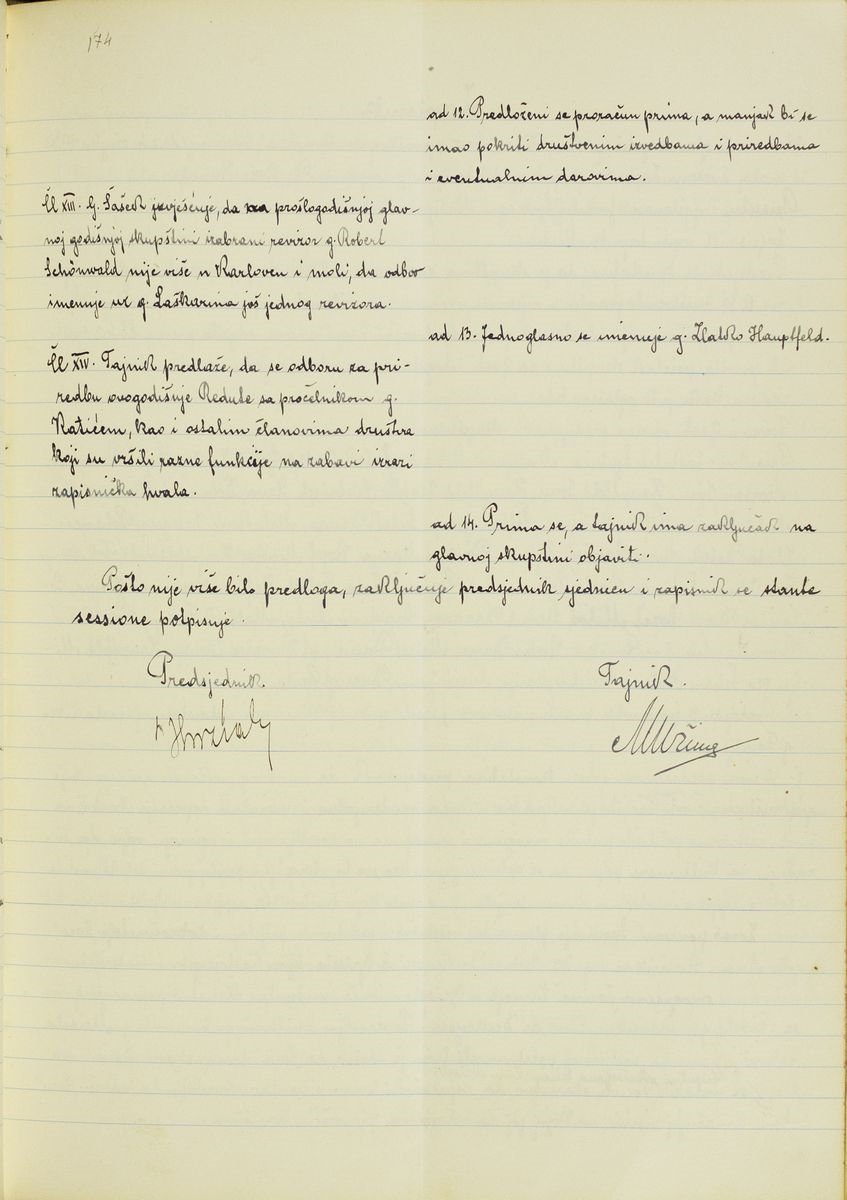 174
ad 12. Predloženi se proračun prima, a manjak bi se
imao pokriti društvenim izvedbama i priredbama
i eventualnim darovima.
Čl XIII. G. Šašek izvješćuje, da na prošlogodišnjoj glav-
noj godišnjoj skupštini izabrani revizor g. Robert
Schönwald nije više u Karlovcu i moli, da odbor
imenuje uz g. Laškarina još jednog revizora.
ad 13. Jednoglasno se imenuje g. Zlatko Hauptfeld.
Čl XIV. Tajnik predlaže, da se odboru za pri-
redbu ovogodišnje Redute sa pročelnikom g.
Katićem, kao i ostalim članovima društva
koji su vršili razne funkcije na zabavi izrazi
zapisnička hvala.
ad 14. Prima se, a tajnik ima zaključak na
glavnoj skupštini objaviti.
Pošto nije više bilo predloga, zaključuje predsjednik sjednicu i zapisnik se stante
sessione potpisuje.
Predsjednik.
Tajnik.